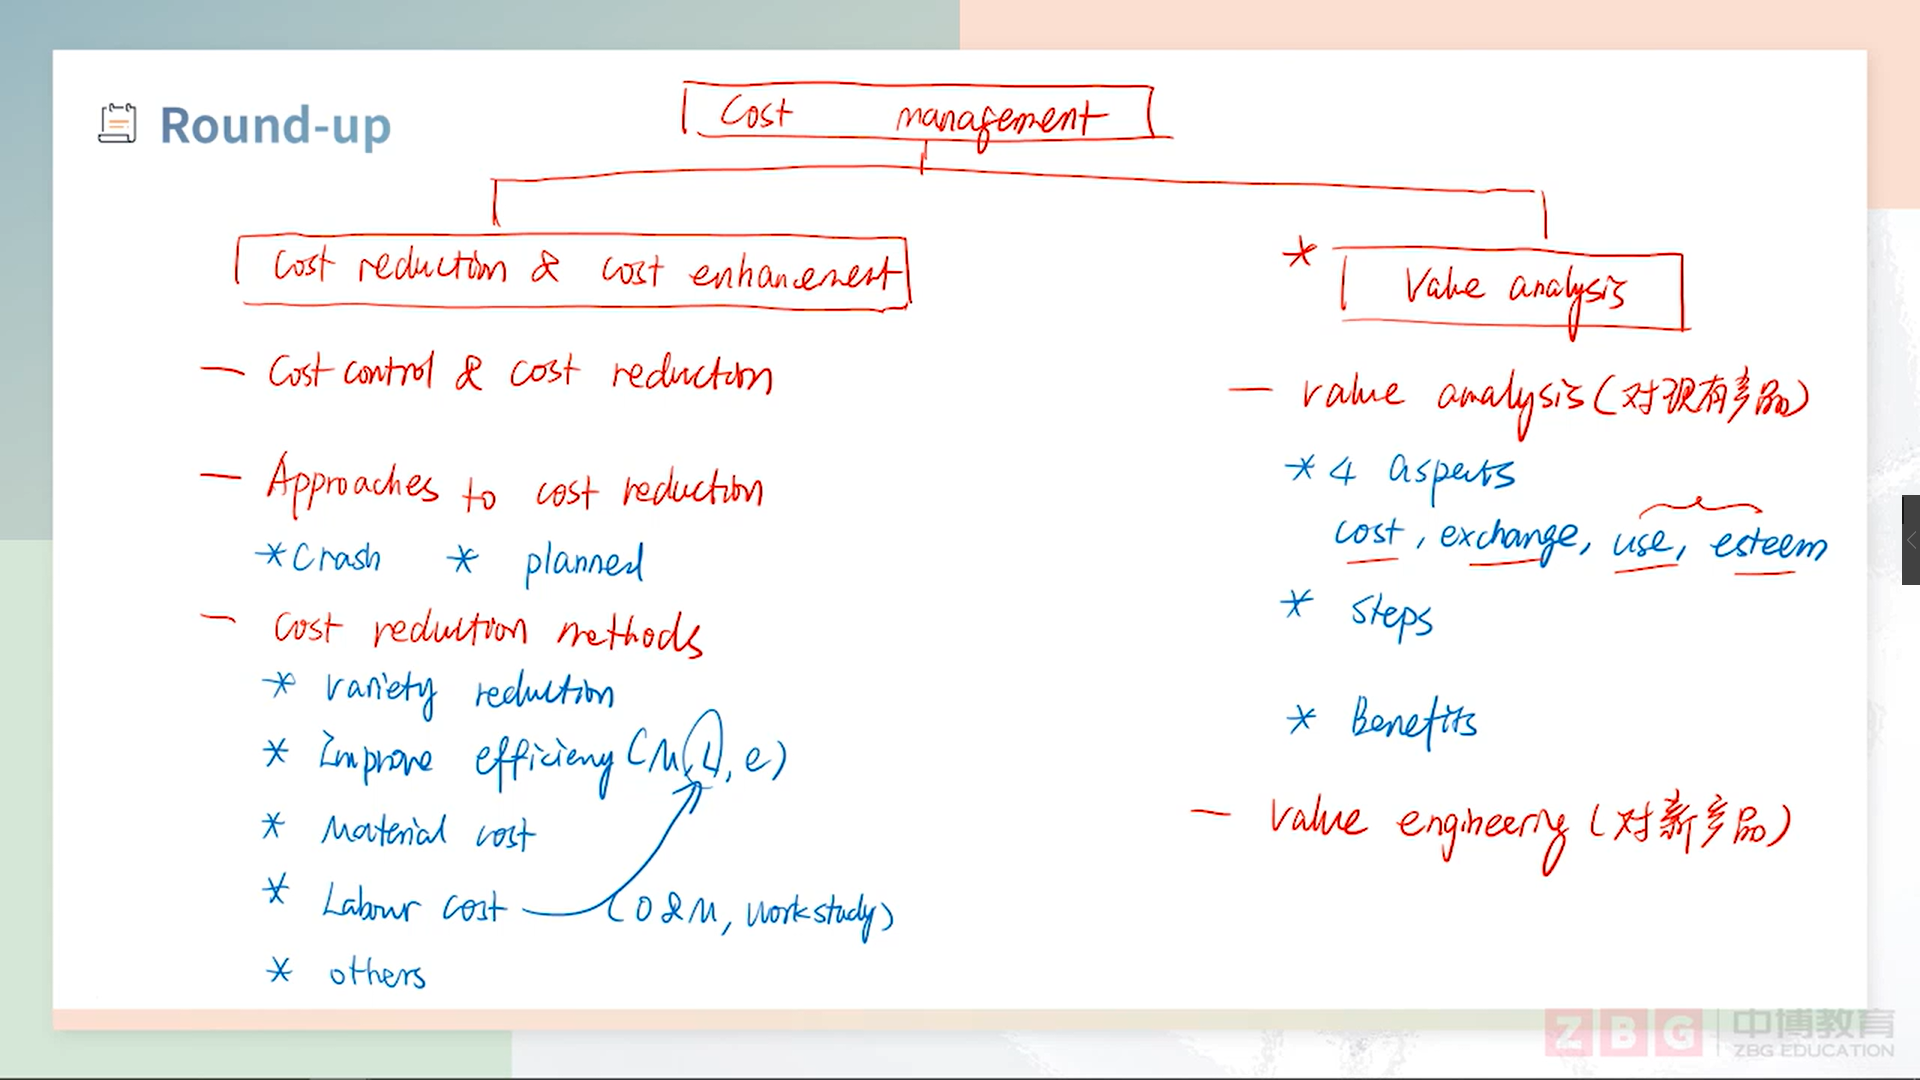 Round-up
Cost management
Cost reduction & cost enhancement
* Value analysis
— Cost control & cost reduction
— Approaches to cost reduction
* Crash * planned
— Cost reduction methods
* Variety reduction
* Improve efficieny (M, L, e)
* Material cost
* Labour cost (O&M, work study)
* others
— Value analysis (对现有产品)
* 4 aspects
cost, exchange, use, esteem
* Steps
* Benefits
— Value engineering (对新产品)
ZBG 中博教育
ZBG EDUCATION